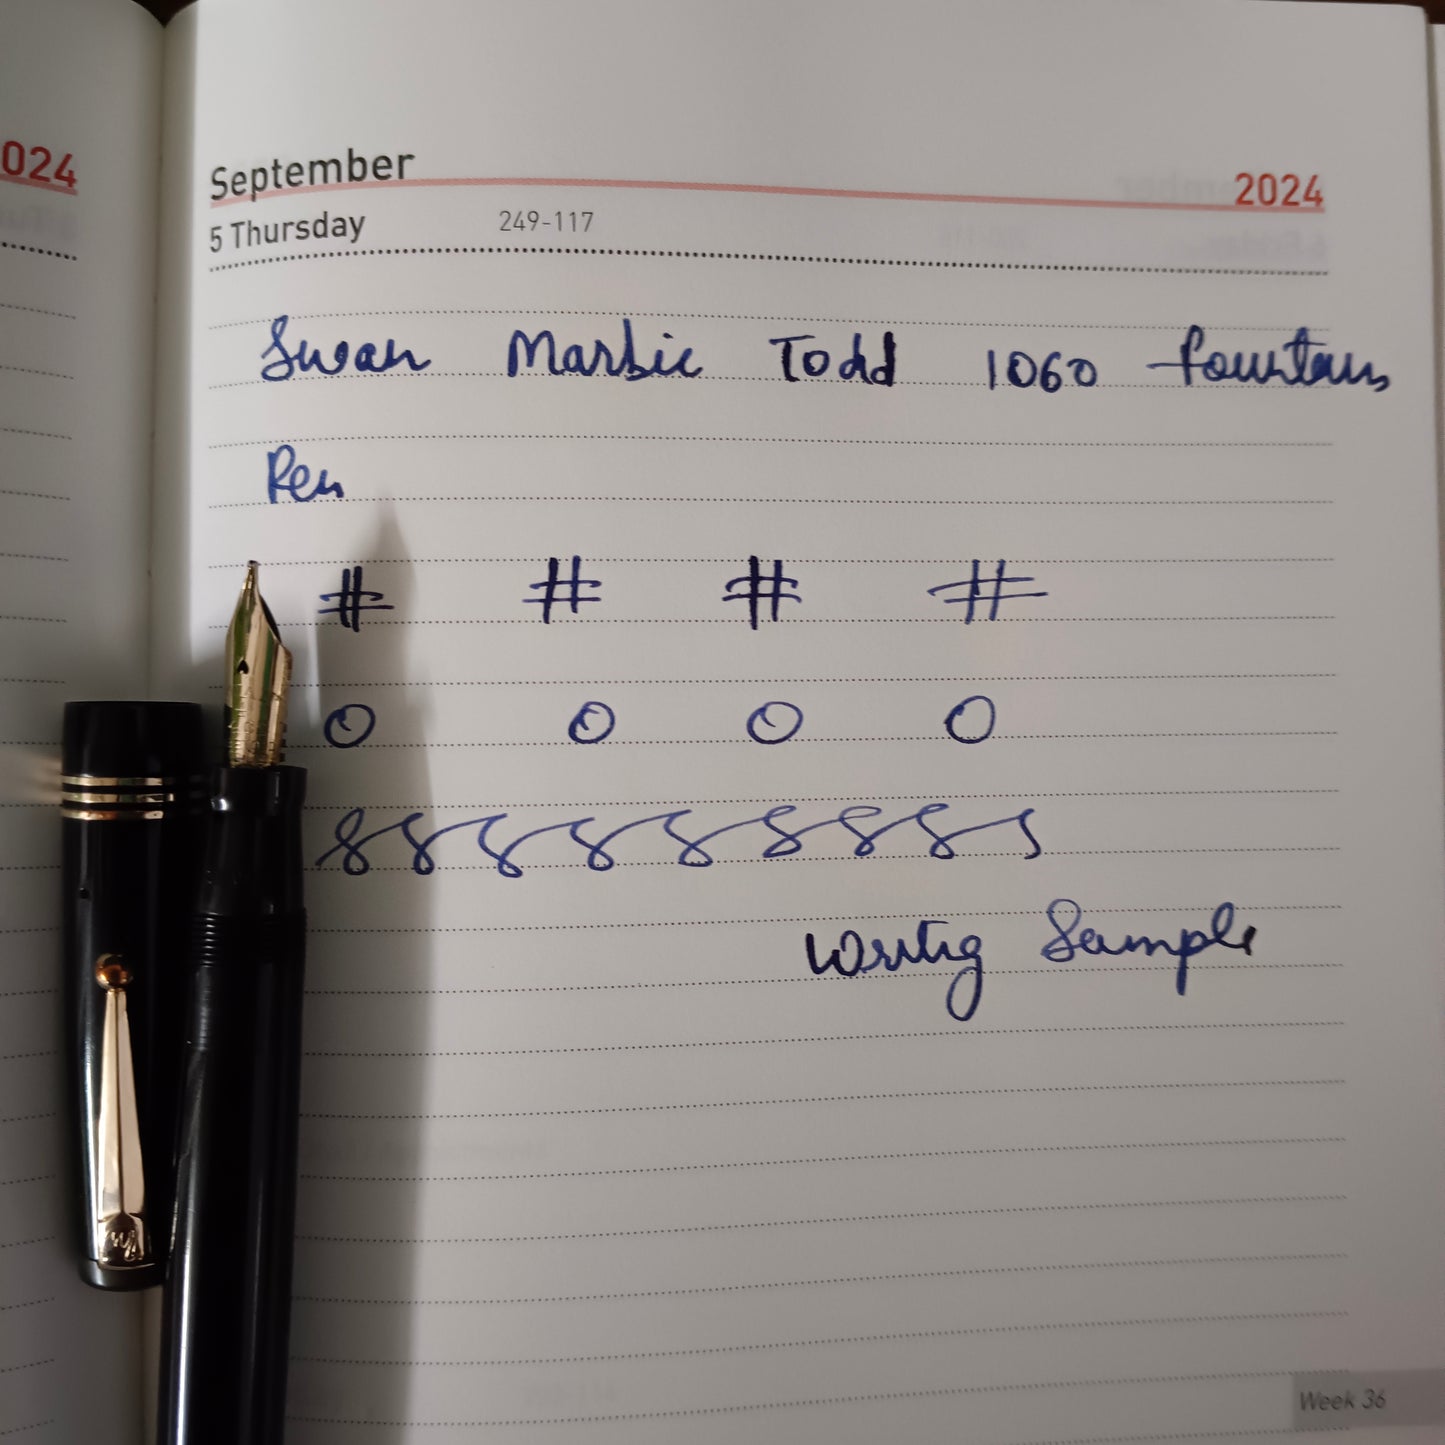 024
September 2024
5 Thursday 249-117
Swan Marbie Todd 1060 fountain
Pen
# # # #
O O O O
Writing Sample
Week 36